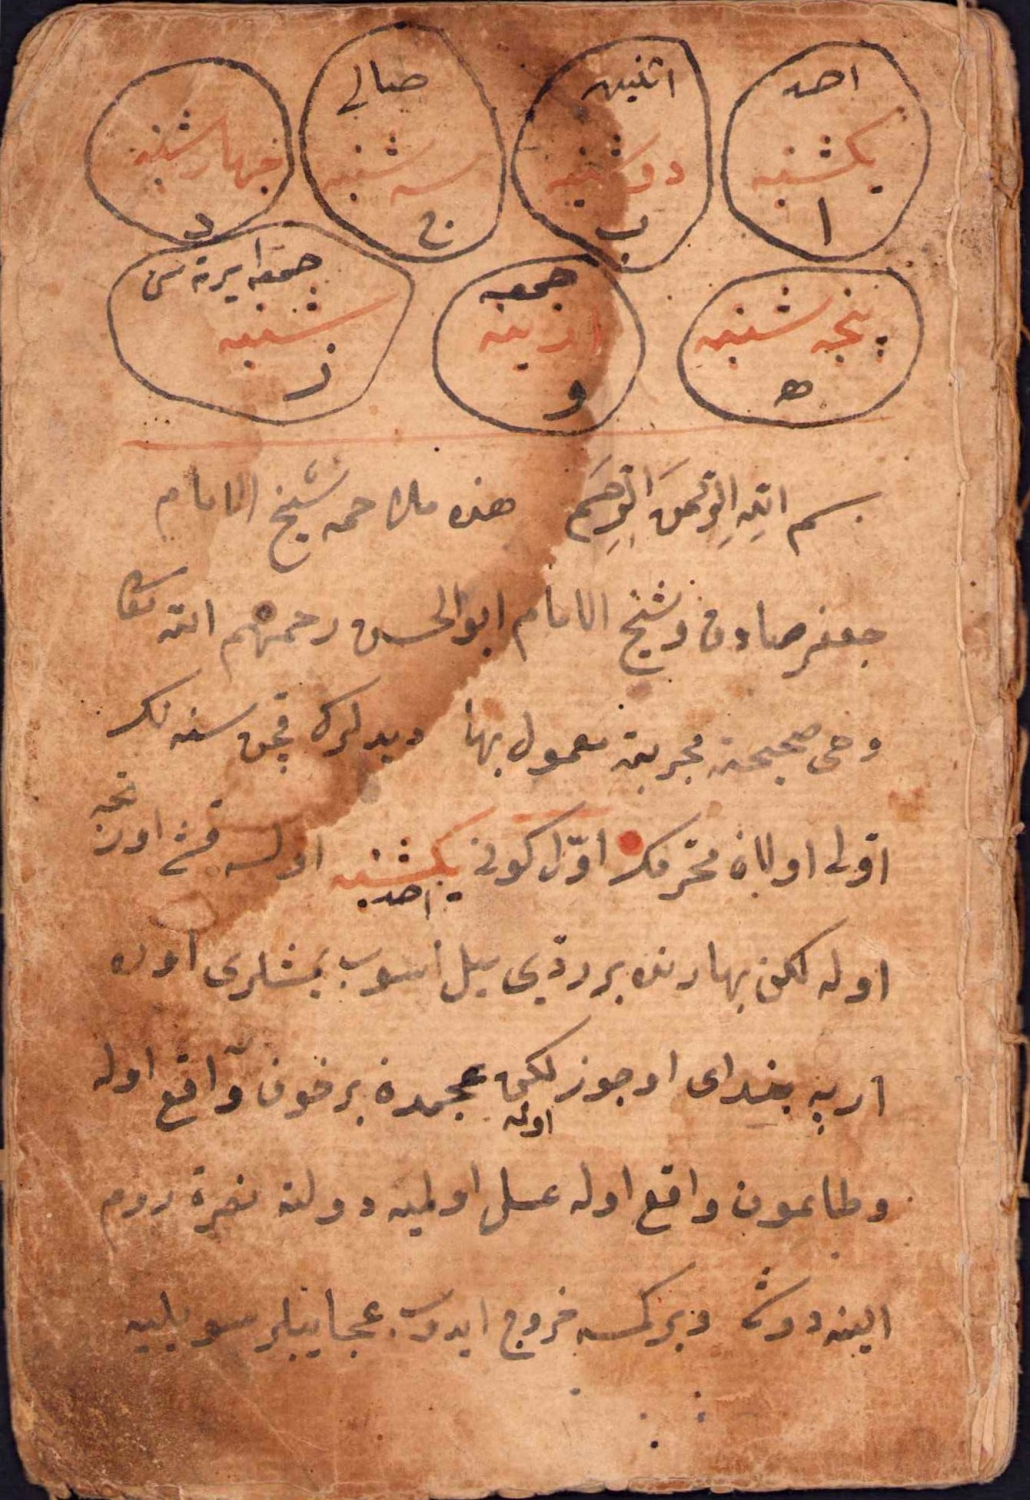 احد
یکشنبه
ا
اثنین
دوشنبه
ب
صالی
سه شنبه
ج
جهارشنبه
د
پنجه شنبه
ه
جمعه
ازینه
و
جمعه ایرته سی
شنبه
ز
بسم الله الرحمن الرحیم هذه ملاحمه شیخ الامام
جعفر صادق وشیخ الامام ابو الحسن رحمهم الله تعالی
وهی صحیحة مجربة معمول بها دیدلرکه قچن سنه لک
اولی اولان محرمک اول کونی یکشنبه اولسه قش اوزنجه
احد
اوله لکن بهارنده بر ردی ییل اسوب یمشلری اوره
اربه بغدای اوجوز لکن عجمده بر خوف واقع اوله
اوله
وطاعون واقع اوله عسل اولمیه دولت نصرة روم
الینه دوشه وبر کمسه خروج ایدوب عجایبلر سویلیه